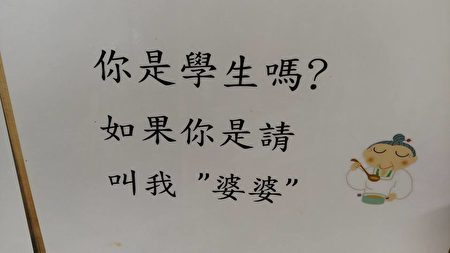 你是學生嗎?
如果你是請
叫我 "婆婆"